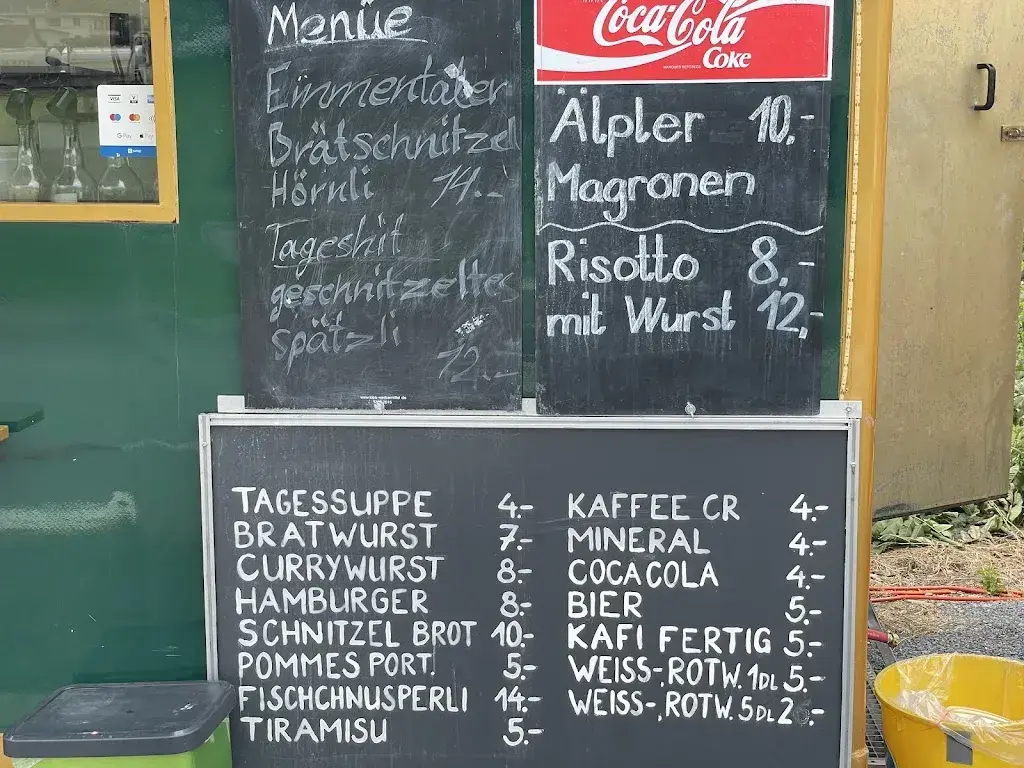 Menüe
Emmentaler
Brätschnitzel
Hörnli 14.-
Tageshit
geschnitzeltes
spätzli
12.-
Coca-Cola
Coke
Älpler 10.-
Magronen
Risotto 8.-
mit Wurst 12,-
VISA V
G Pay Pay
TAGESSUPPE 4.-
BRATWURST 7.-
CURRYWURST 8.-
HAMBURGER 8.-
SCHNITZEL BROT 10.-
POMMES PORT. 5.-
FISCHCHNUSPERLI 14.-
TIRAMISU 5.-
KAFFEE CR 4.-
MINERAL 4.-
COCA COLA 4.-
BIER 5.-
KAFI FERTIG 5.-
WEISS-, ROTW. 1DL 5.-
WEISS-, ROTW. 5DL 2 .-